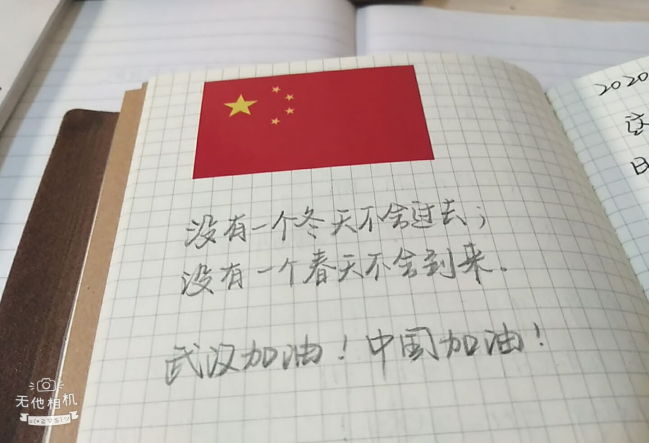 没有一个冬天不会过去；
没有一个春天不会到来.
武汉加油！中国加油！
2020
这
日
无他相机